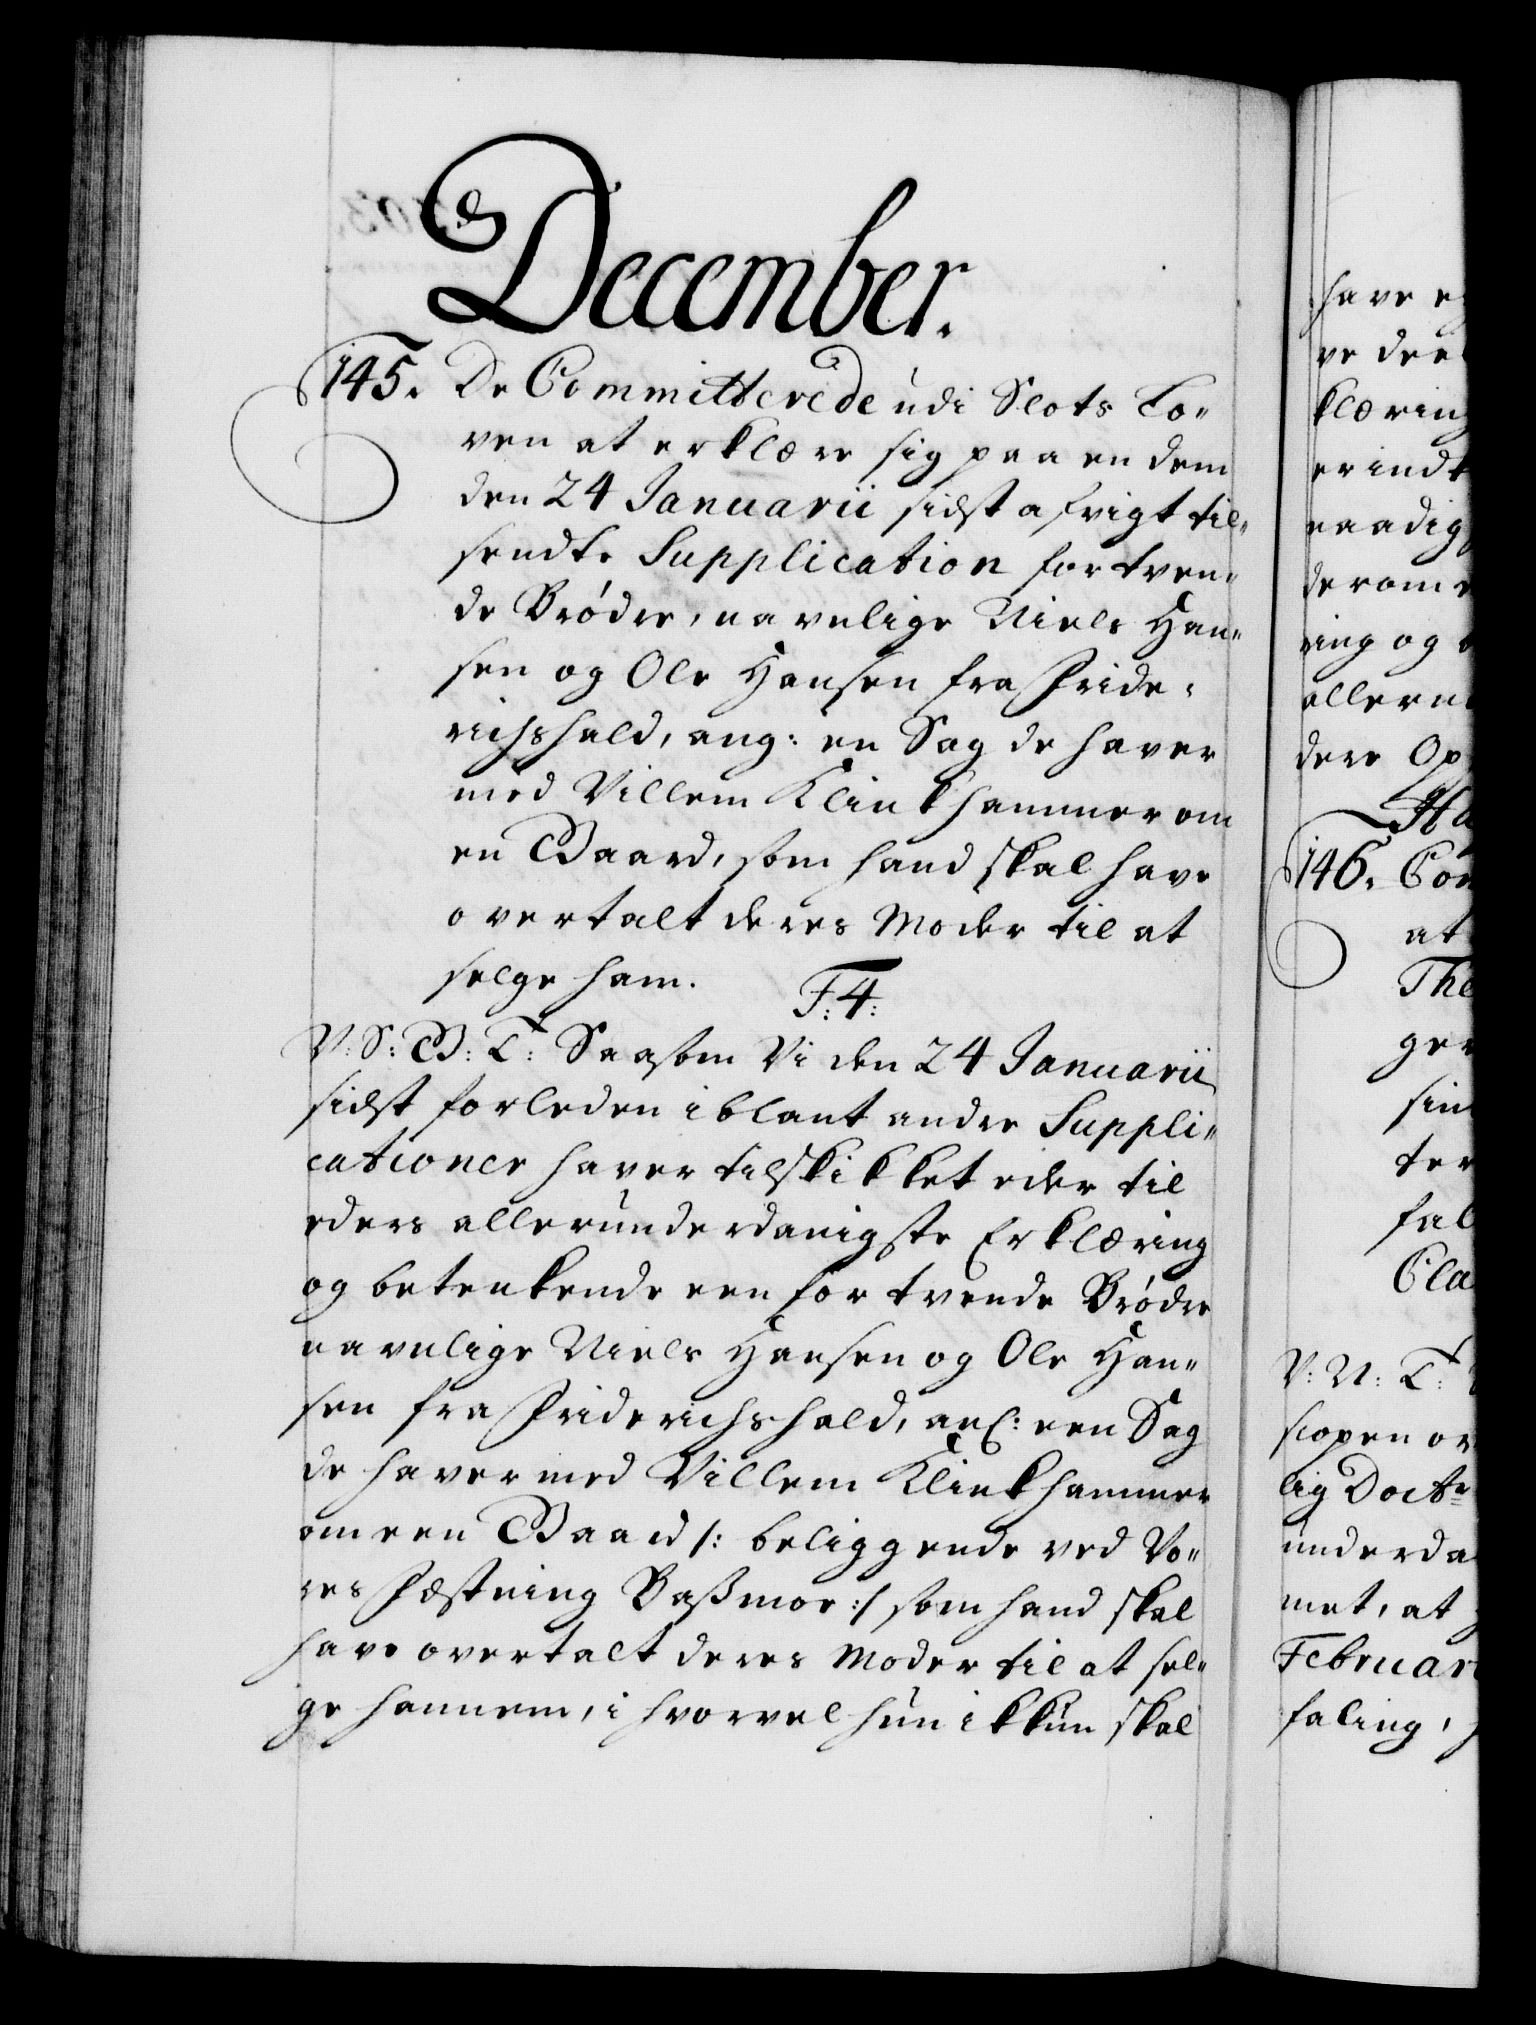 December.
145. De Committerede udi Slots Lo-
ven at erklære sig paa en dem
den 24 Januarii sidst afvigt til-
sendte Supplication for tven-
de Brødre, navnlige Niels Han-
sen og Ole Hansen fra Fride-
richshald, ang: en Sag de haver
med Villem Klinkhammer om
en Gaard, som hand skal have
overtalt deres Moder til at
selge ham.
F: 4:
V: S: G: T: Saasom Vi den 24 Januarii
sidst forleden iblant andre Suppli-
cationer haver tilskikket eder til
eders allerunderdanigste Erklæring
og betenkende een for tvende Brødre
navnlige Niels Hansen og Ole Han-
sen fra Friderichshald, anl: een Sag
de haver med Villem Klinkhammer
om een Gaard /: beliggende ved Vo-
res Fæstning Basmoe :/ som hand skal
have overtalt deres Moder til at sel-
ge hannem, i hvorvel hun ikkun skal
have
ve
klæring
erind
naadig
derom
ring og
allern
dere Op
146. Com
at
The
ger
sin
ter
fal
Cla
V: N: T:
scopen
lig Doctr
underda
met, at
Februar
faling,